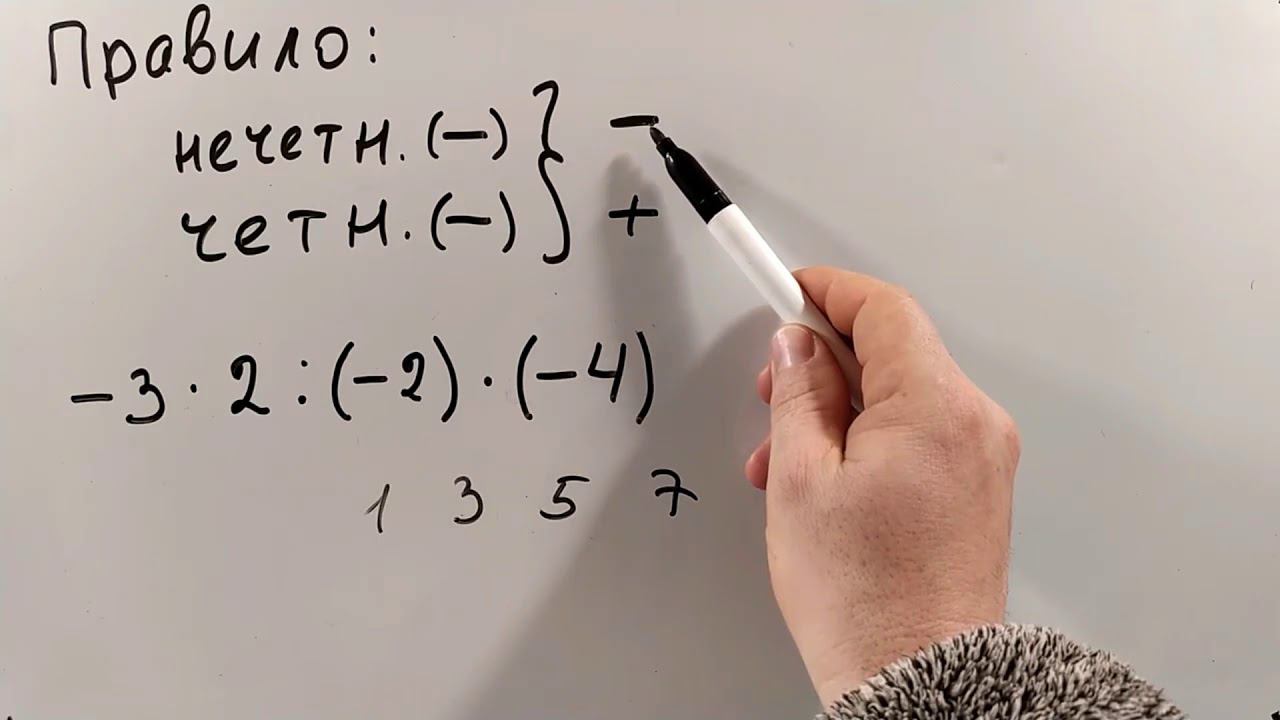 Правило:
нечетн. (−) } −
четн. (−) } +
−3 · 2 : (−2) · (−4)
1 3 5 7